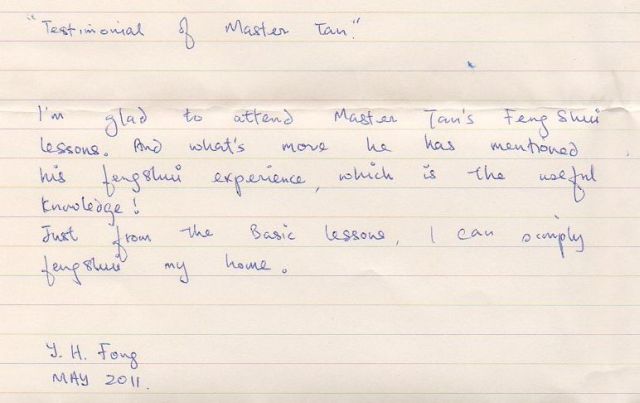 "Testimonial of Master Tan."
I'm glad to attend Master Tan's Feng Shui
lessons. And what's more he has mentioned
his fengshui experience, which is the useful
knowledge!
Just from the Basic lessons, I can simply
fengshui my home.
Y. H. Fong
MAY 2011.